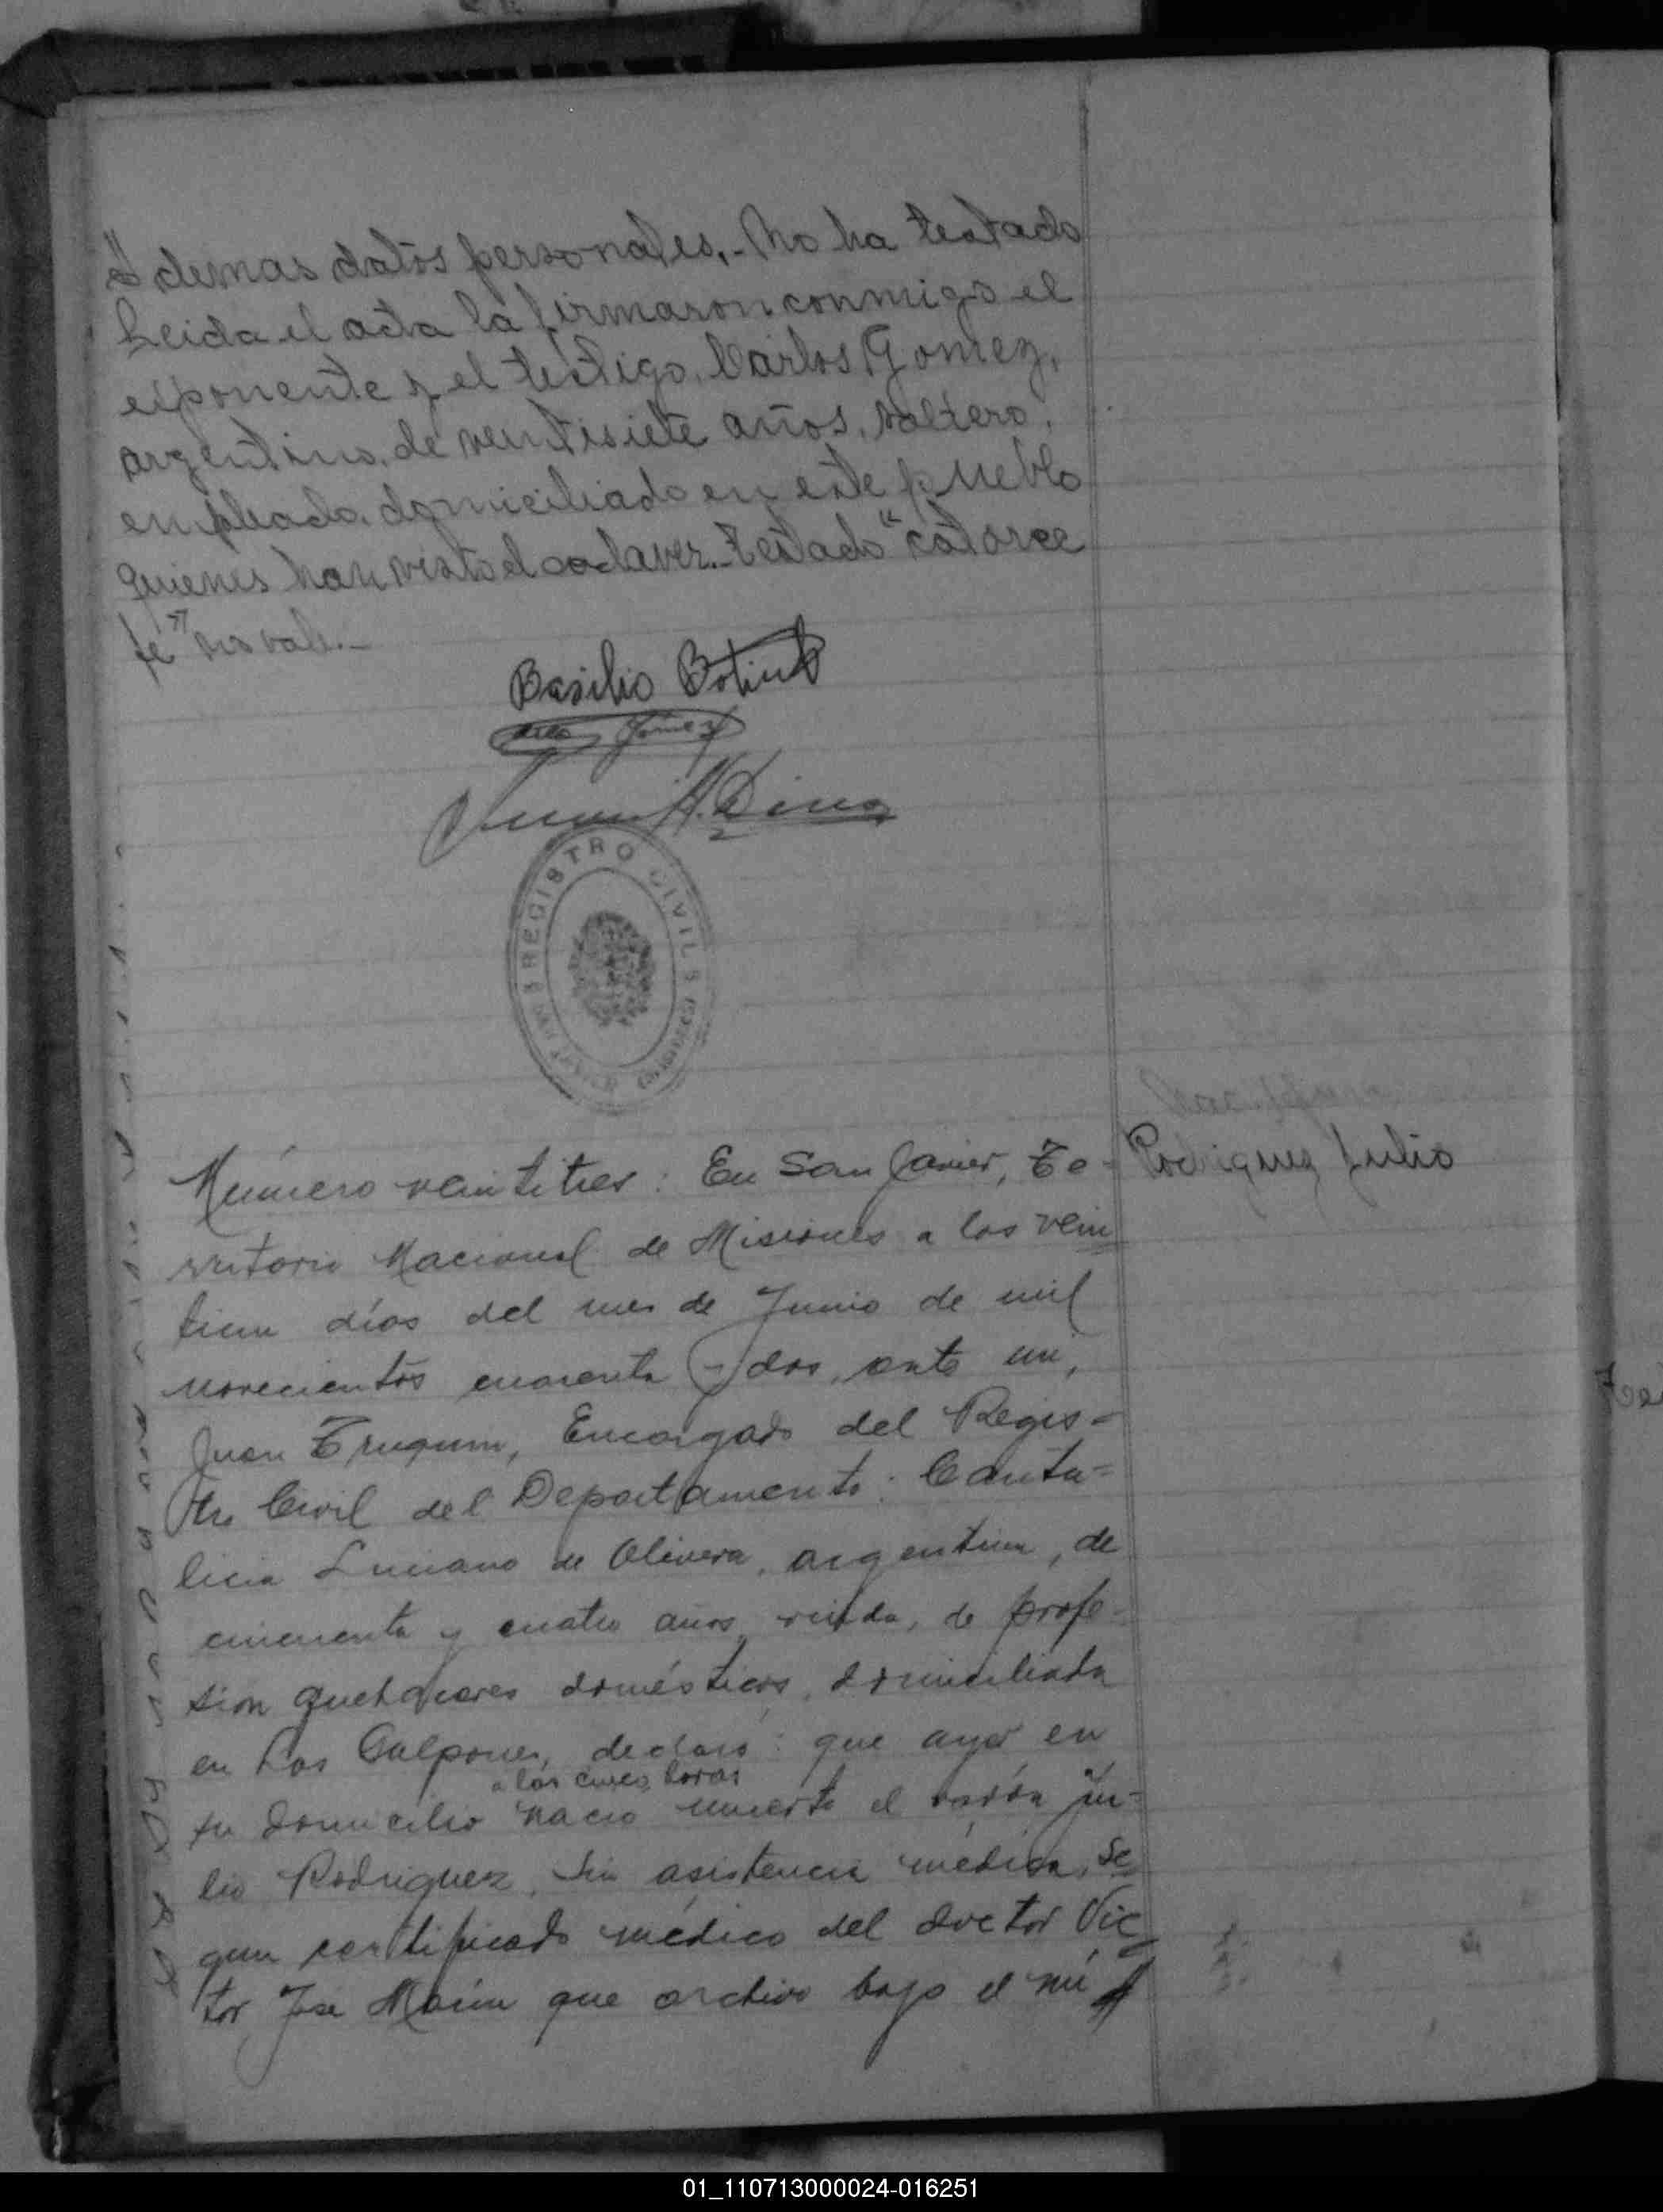 demas datos personales.- No ha testado
Leida el acta la firmaron conmigo el
exponente y el testigo, Carlos Gomez,
argentino, de ventisiete años, soltero,
empleado, domiciliado en este pueblo
quienes han visto el cadaver.- Testado "catorce
fé" no vale.-
Basilio
Gómez
REGISTRO CIVIL
SAN JAVIER (MISIONES)
Número veintitres: En San Javier, Te-
rritorio Nacional de Misiones a los vein
tiun días del mes de Junio de mil
novecientos cuarenta y dos, ante mi,
Juan Encargado del Regis-
tro Civil del Departamento: Canta=
licia Luciano de Olivera, argentina, de
cincuenta y cuatro años, viuda, de profe-
sion quehaceres domésticos, domiciliada
en Los Galpones, declaró: que ayer en
a las cinco horas
su domicilio nació muerto el varón Ju=
lio Rodriguez, sin asistencia médica, se
gun certificado médico del doctor Vic
tor José Marin que archivo bajo el nú
Rodriguez Julio
01_110713000024-016251